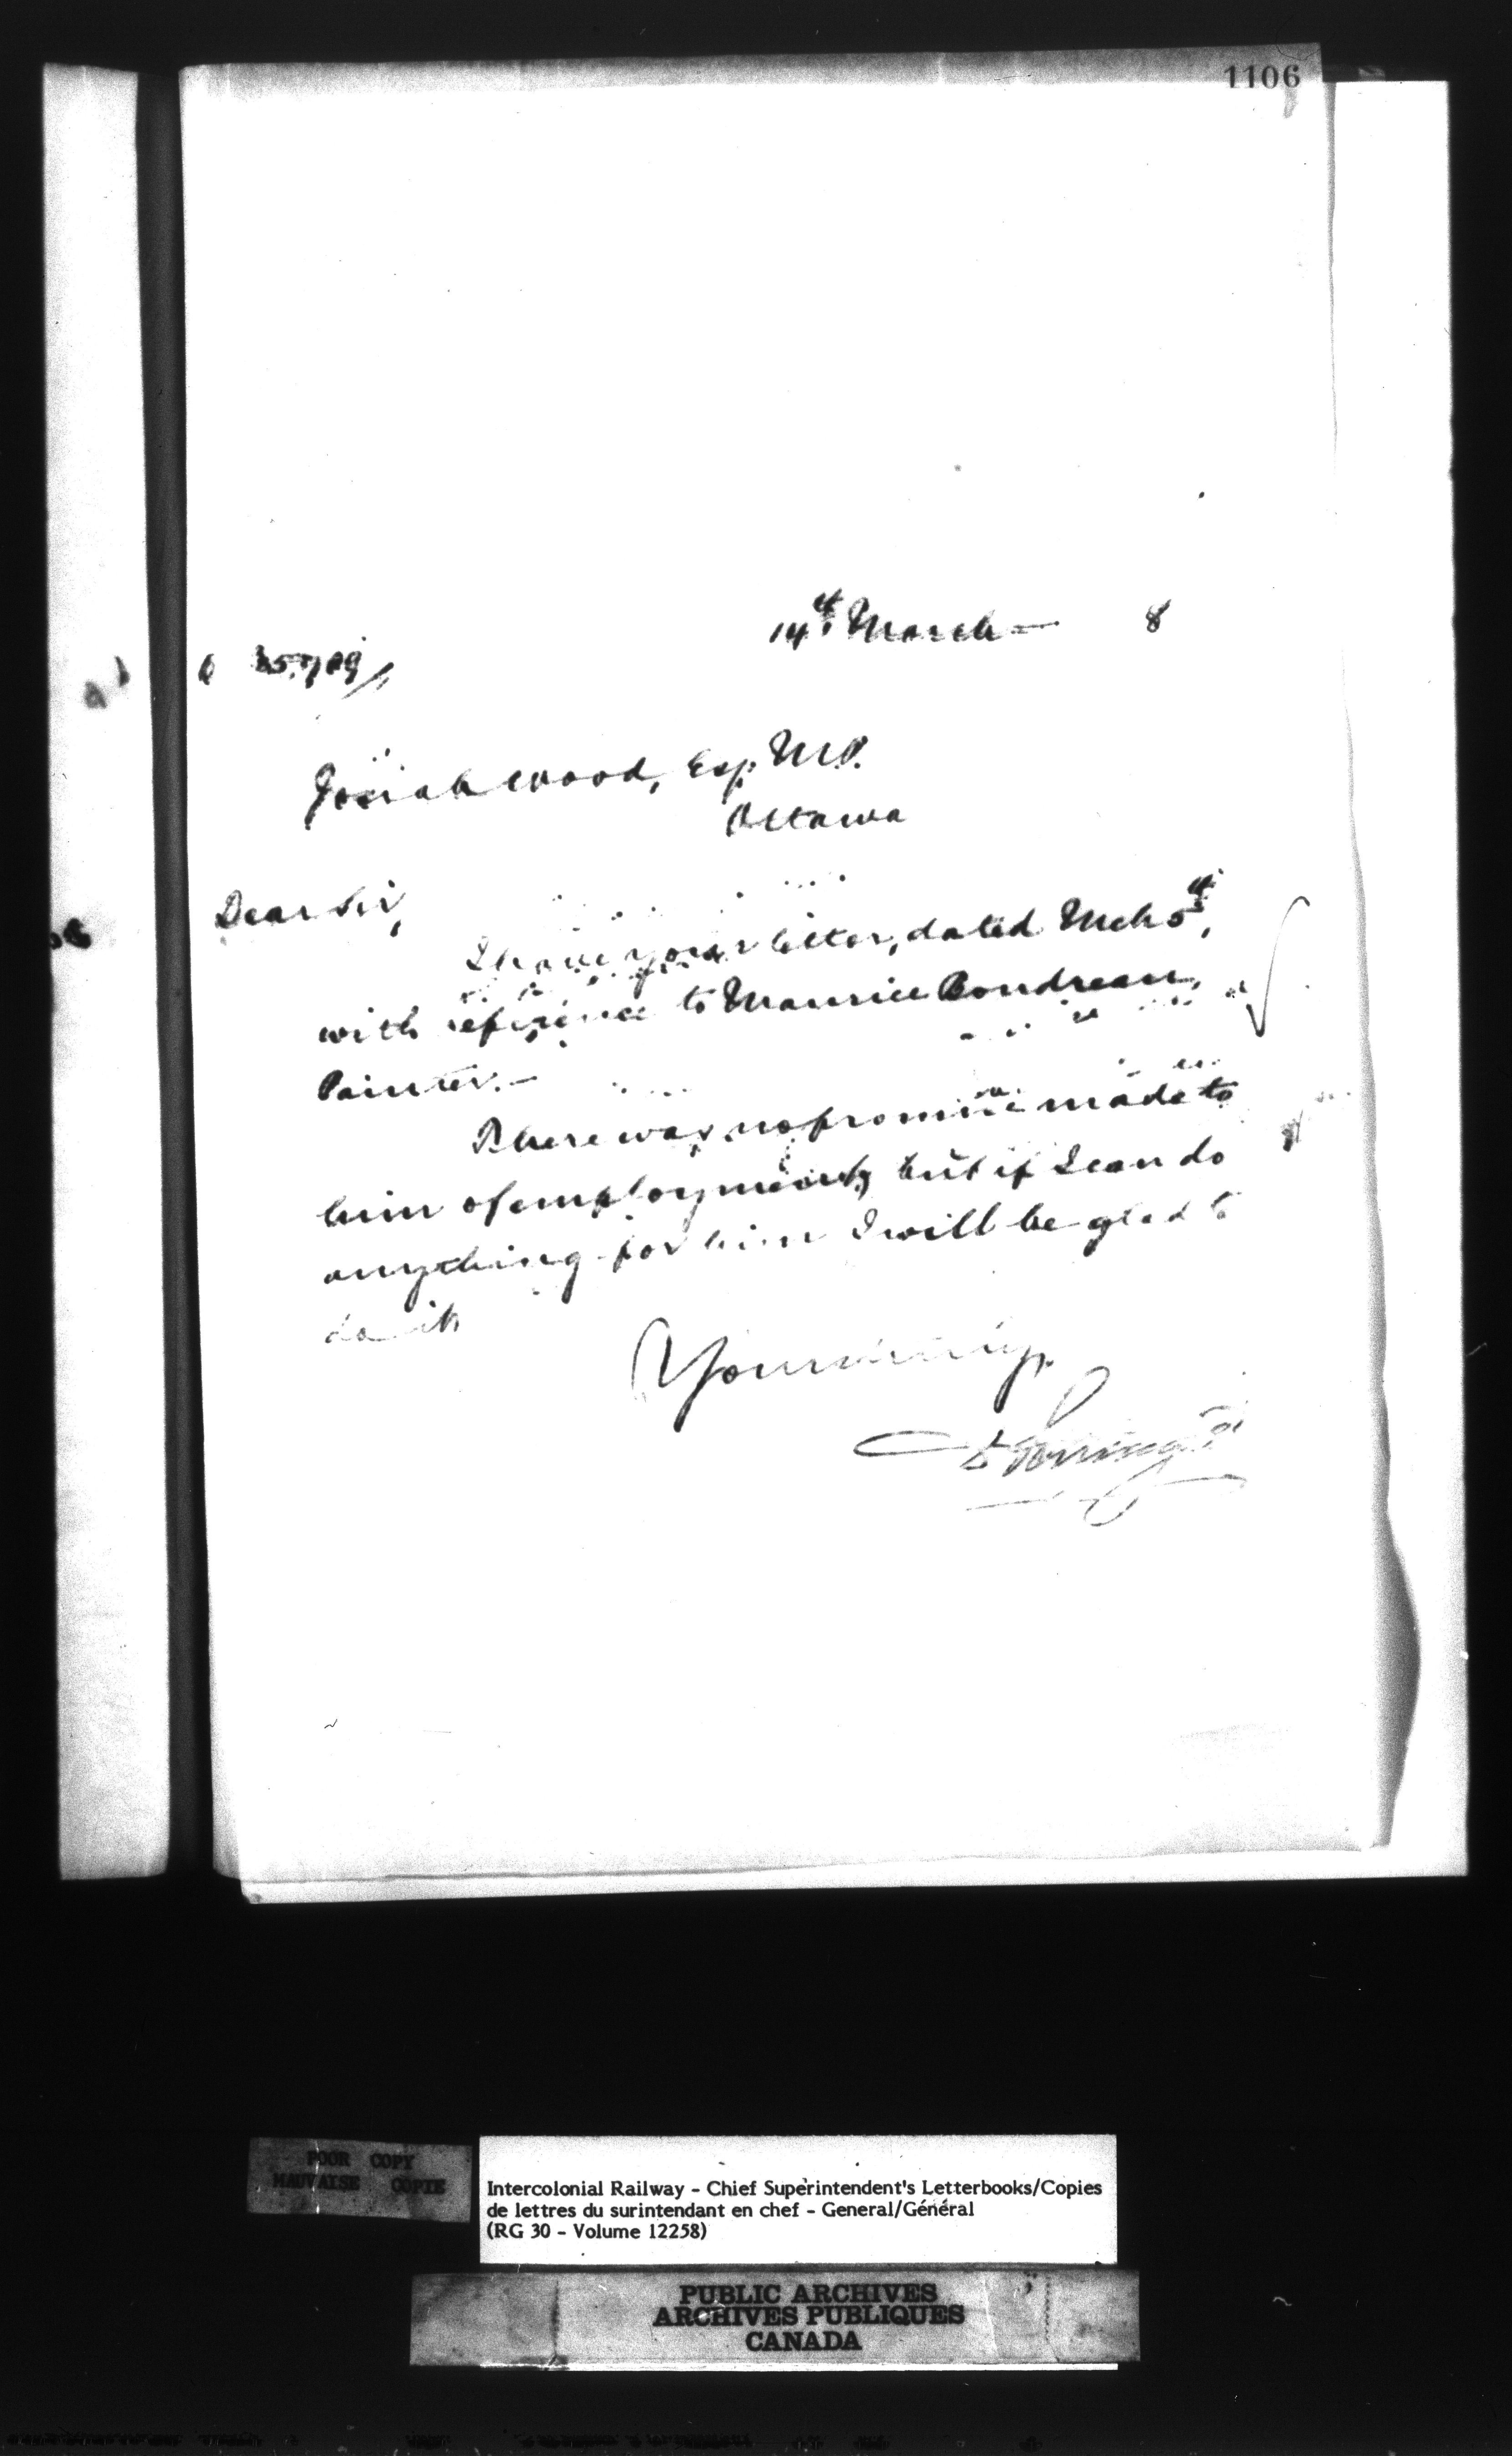 1106
14th March — 8
Josiah Wood, Esq. M.P.
Ottawa
Dear Sir,
I have your letter, dated Mch 5th,
with reference to Maurice Boudreau,
Painter. —
There was no promise made to
him of employment, but if I can do
anything for him I will be glad to
do it.
Yours truly,
D Pottinger
POOR COPY
MAUVAISE COPIE
Intercolonial Railway - Chief Superintendent's Letterbooks/Copies
de lettres du surintendant en chef - General/Général
(RG 30 - Volume 12258)
PUBLIC ARCHIVES
ARCHIVES PUBLIQUES
CANADA